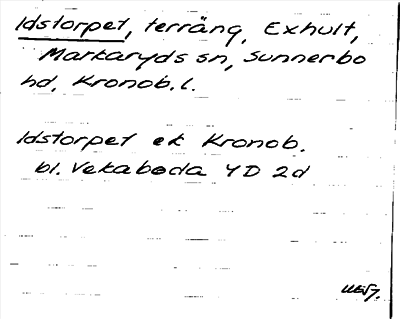 Idstorpet, terräng, Exhult,
Markaryds sn, Sunnerbo
hd, Kronob. l.
Idstorpet ek Kronob.
bl. Vekaboda 4D 2d